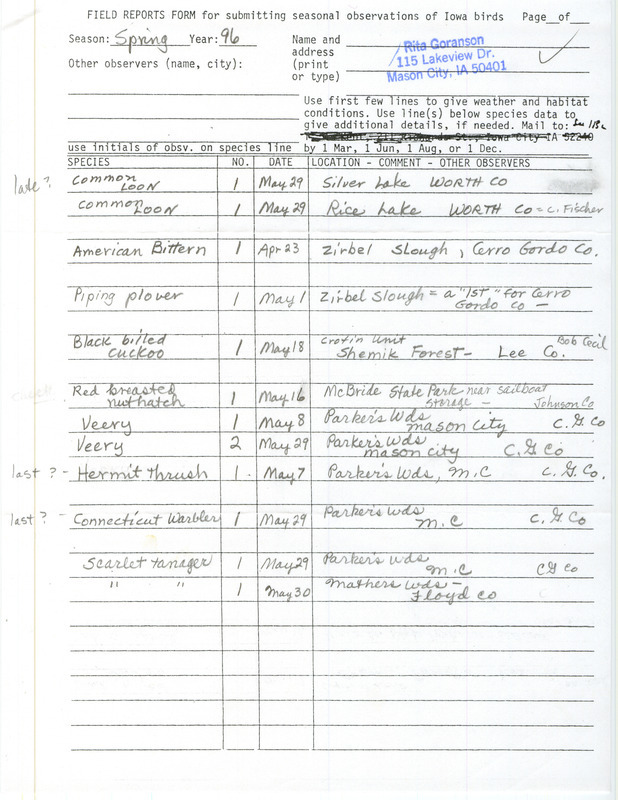 FIELD REPORTS FORM for submitting seasonal observations of Iowa birds Page__of___
Season: Spring Year: 96 Name and
address
(print
or type)
Rita Goranson
115 Lakeview Dr.
Mason City, IA 50401
Other observers (name, city):
Use first few lines to give weather and habitat
conditions. Use line(s) below species data to
give additional details, if needed. Mail to:
Iowa City IA 52240
use initials of obsv. on species line by 1 Mar, 1 Jun, 1 Aug, or 1 Dec.
SPECIES NO. DATE LOCATION - COMMENT - OTHER OBSERVERS
late? Common Loon 1 May 29 Silver Lake WORTH CO
Common Loon 1 May 29 Rice Lake WORTH CO = C. Fischer
American Bittern 1 Apr 23 Zirbel Slough, Cerro Gordo Co.
Piping plover 1 May 1 Zirbel Slough = a "1st" for Cerro
Gordo Co —
Black billed
cuckoo 1 May 18 Croton Unit Bob Cecil
Shemik Forest - Lee Co.
check Red breasted
nuthatch 1 May 16 McBride State Park near sailboat
storage - Johnson Co
Veery 1 May 8 Parker's Wds
mason city C. G Co
Veery 2 May 29 Parker's Wds
mason city C. G Co
last? - Hermit thrush 1 May 7 Parker's Wds, M.C C. G. Co.
last? - Connecticut Warbler 1 May 29 Parker's Wds
M.C C. G Co
Scarlet tanager 1 May 29 Parker's Wds
M.C C G Co
" " 1 May 30 Mathers Wds -
Floyd Co